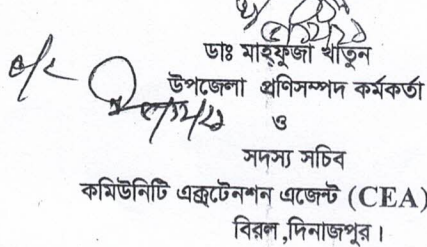 ডাঃ মাহফুজা খাতুন
উপজেলা প্রণিসম্পদ কর্মকর্তা
ও
সদস্য সচিব
কমিউনিটি এক্সটেনশন এজেন্ট (CEA)
বিরল,দিনাজপুর।